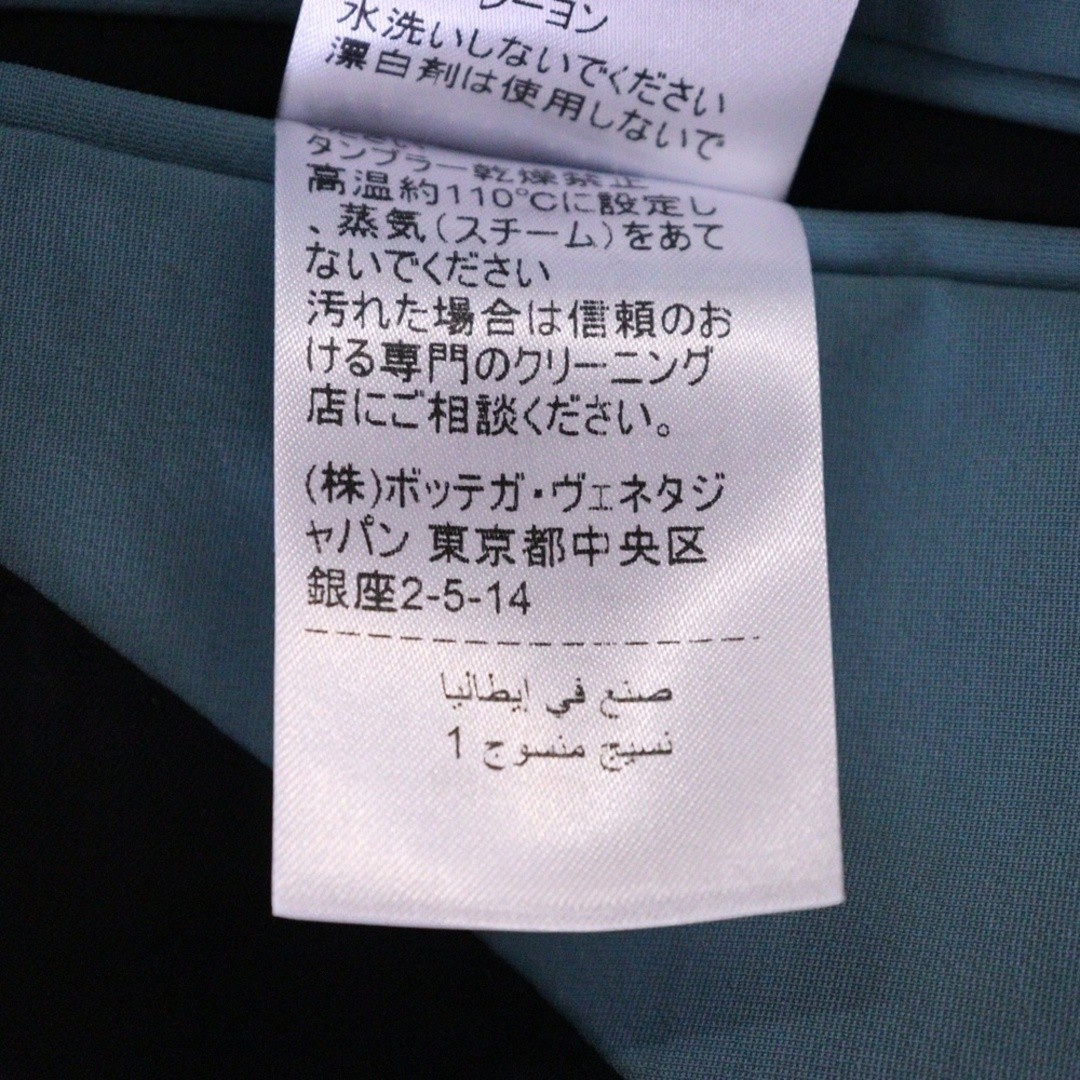 レーヨン
水洗いしないでください
漂白剤は使用しないで
タンブラー乾燥禁止
高温約110℃に設定し
、蒸気(スチーム)をあて
ないでください
汚れた場合は信頼のお
ける専門のクリーニング
店にご相談ください。
(株)ボッテガ・ヴェネタジ
ャパン 東京都中央区
銀座2-5-14
صنع في إيطاليا
نسيج منسوج 1